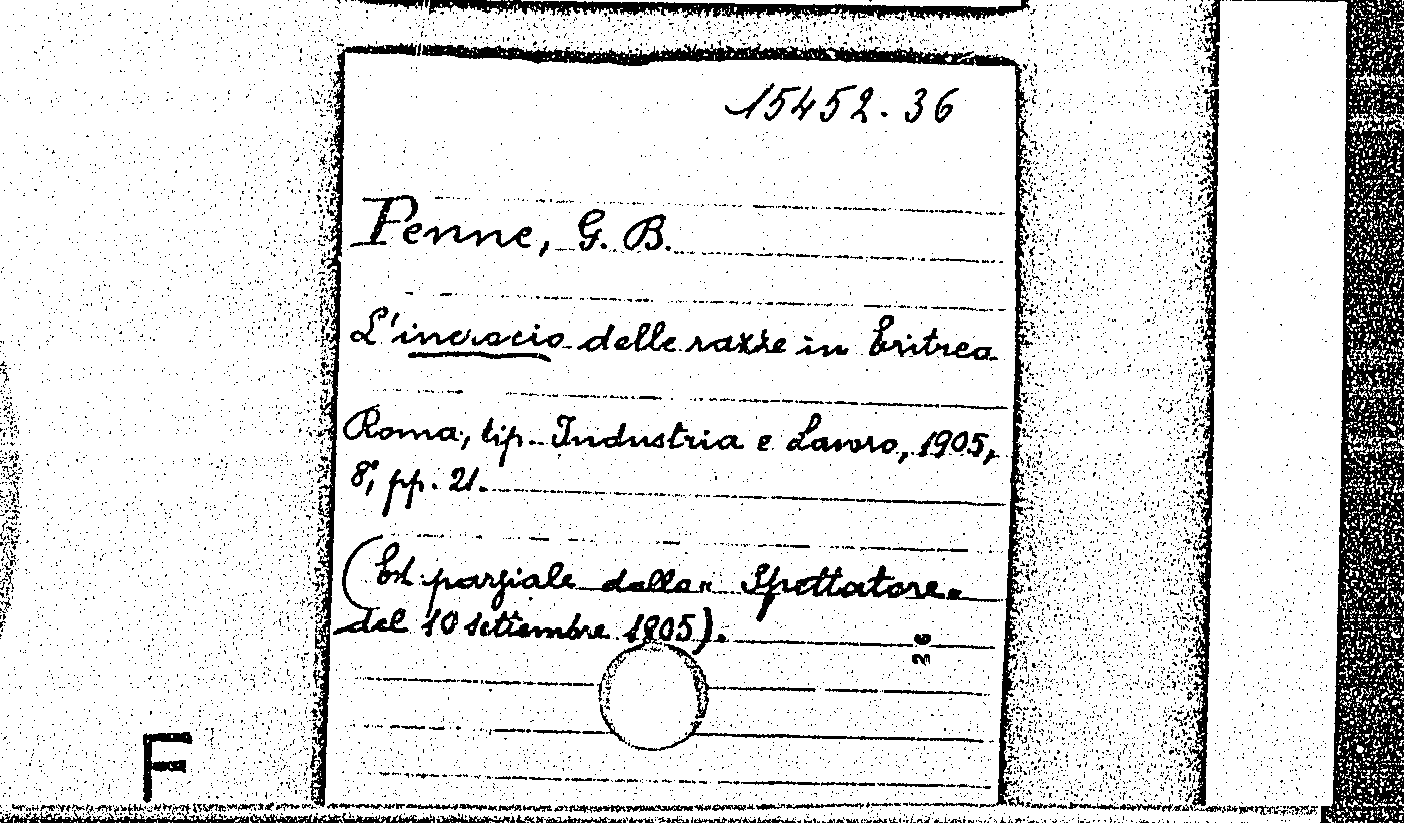 15452.36
Penne, G. B.
L'incrocio delle razze in Eritrea
Roma, tip. Industria e Lavoro, 1905,
8°, pp. 21.
(Ed. parziale dallo « Spettatore »
del 10 settembre 1905).
26
F